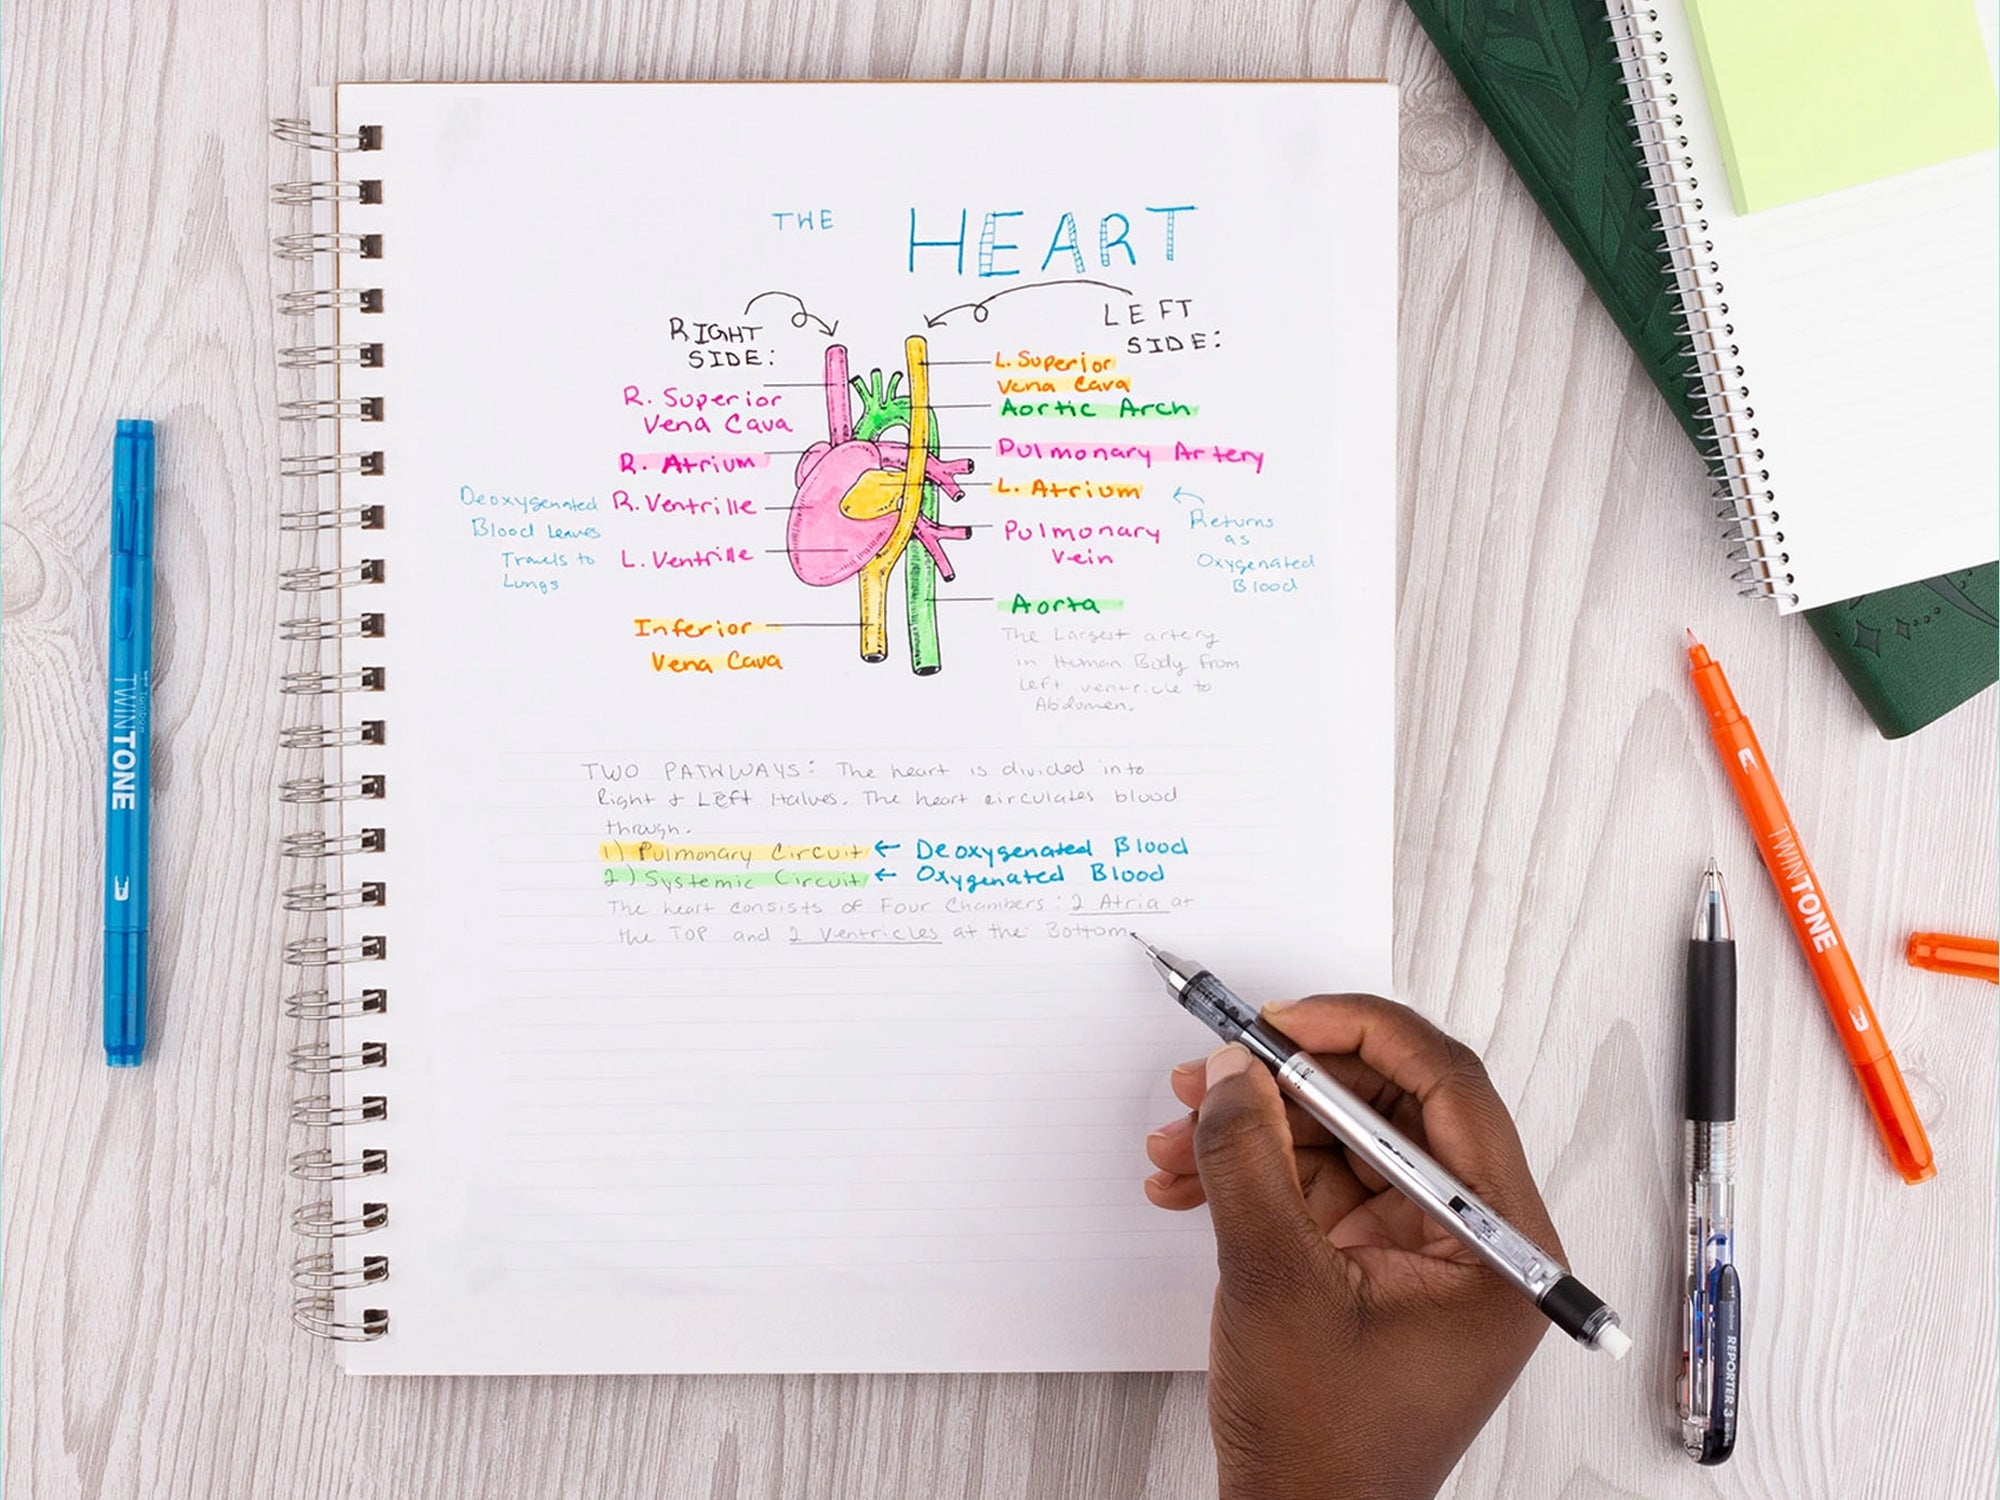 THE HEART
RIGHT
SIDE:
LEFT
SIDE:
R. Superior
Vena Cava
R. Atrium
R. Ventrille
L. Ventrille
Inferior
Vena Cava
Deoxygenated
Blood Leaves
Travels to
Lungs
L. Superior
Vena Cava
Aortic Arch
Pulmonary Artery
L. Atrium
Pulmonary
Vein
Aorta
Returns
as
Oxygenated
Blood
The Largest artery
in Human Body from
Left ventricle to
Abdomen.
TWO PATHWAYS: The heart is divided into
Right & Left Halves. The heart circulates blood
through.
1) Pulmonary Circuit ← Deoxygenated Blood
2) Systemic Circuit ← Oxygenated Blood
The heart consists of Four Chambers: 2 Atria at
the TOP and 2 Ventricles at the Bottom.
Tombow
TWINTONE
TWINTONE
REPORTER 3